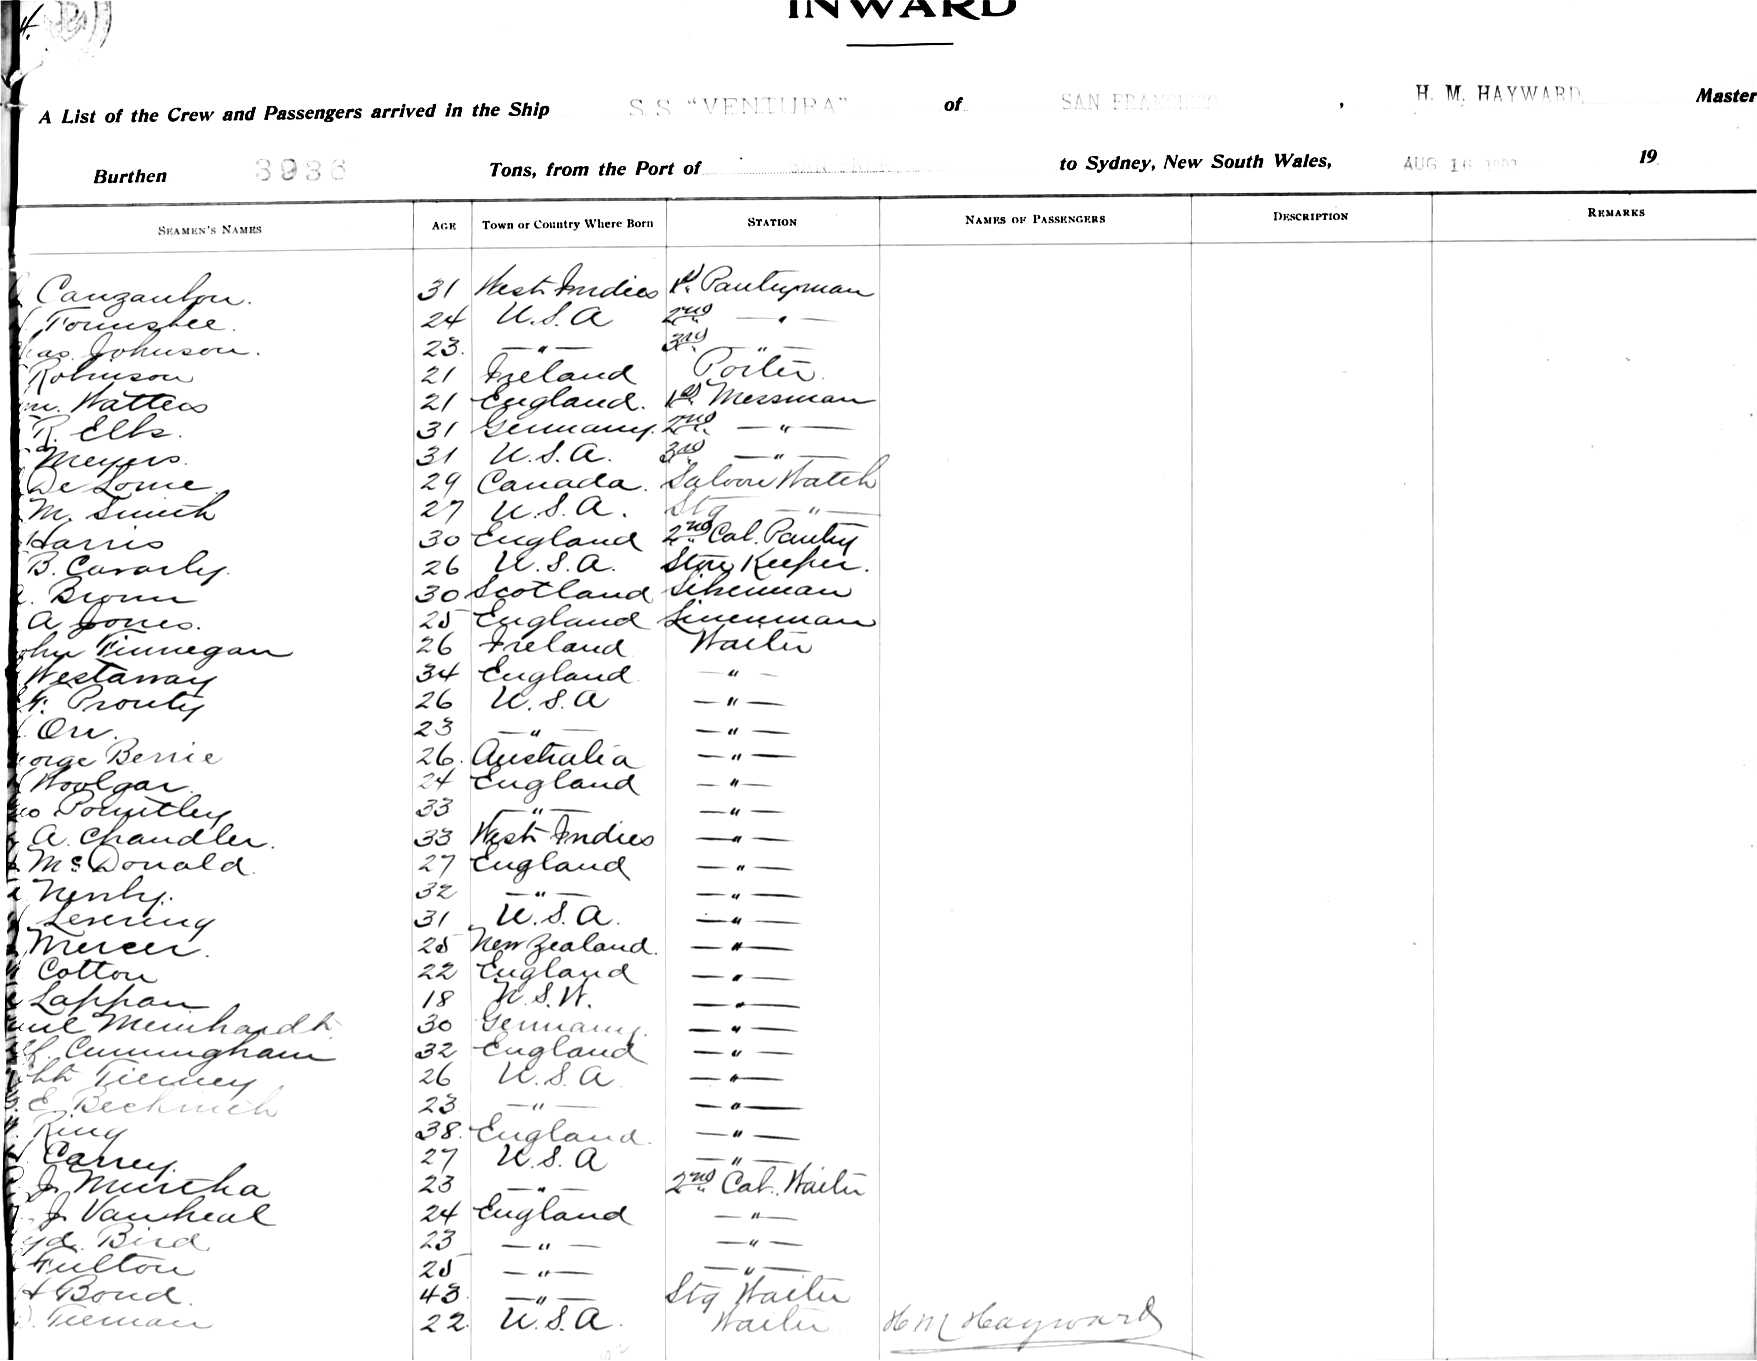 INWARD
A List of the Crew and Passengers arrived in the Ship S.S "VENTURA" of SAN FRANCISCO , H. M. HAYWARD Master
Burthen 3936 Tons, from the Port of to Sydney, New South Wales, AUG 19
SEAMEN'S NAMES AGE Town or Country Where Born STATION NAMES OF PASSENGERS DESCRIPTION REMARKS
31 West Indies 1st. Pantryman
24 U.S.A 2nd — " —
Johnson. 23. — " — 3rd — " —
Robinson 21 Ireland Porter.
Watters 21 England. 1st. Messman
R. Elbs. 31 Germany. 2nd. — " —
Meyers. 31 U.S.A. 3rd — " —
De Lorne 29 Canada. Saloon Watch
M. Smith 27 U.S.A. Stg — " —
Harris 30 England 2nd. Cab. Pantry
B. 26 U.S.A. Store Keeper.
Brown 30 Scotland
A Jones. 25 England Linenman
Finnegan 26 Ireland Waiter
Westaway 34 England — " —
Prouty 26 U.S.A — " —
Orr. 23 — " — — " —
26. Australia — " —
Woolgar. 24 England — " —
Pountley 33 — " — — " —
A. Chandler. 33 West Indies — " —
McDonald. 27 England — " —
32 — " — — " —
Levering 31 U.S.A. — " —
Mercer. 25 New Zealand. — " —
Cotton 22 England — " —
Lappan 18 N.S.W. — " —
Meinhardt 30 Germany. — " —
Cunningham 32 England — " —
Tierney 26 U.S.A — " —
E. 23 — " — — " —
King 38. England. — " —
Carrey. 27 U.S.A — " —
J. Murtha 23 — " — 2nd. Cab. Waiter
J. Vanheal 24 England — " —
Bird 23 — " — — " —
Fulton 25 — " — — " —
Bond. 43. — " — Stg Waiter
Tieman 22. U.S.A. Waiter H M Hayward